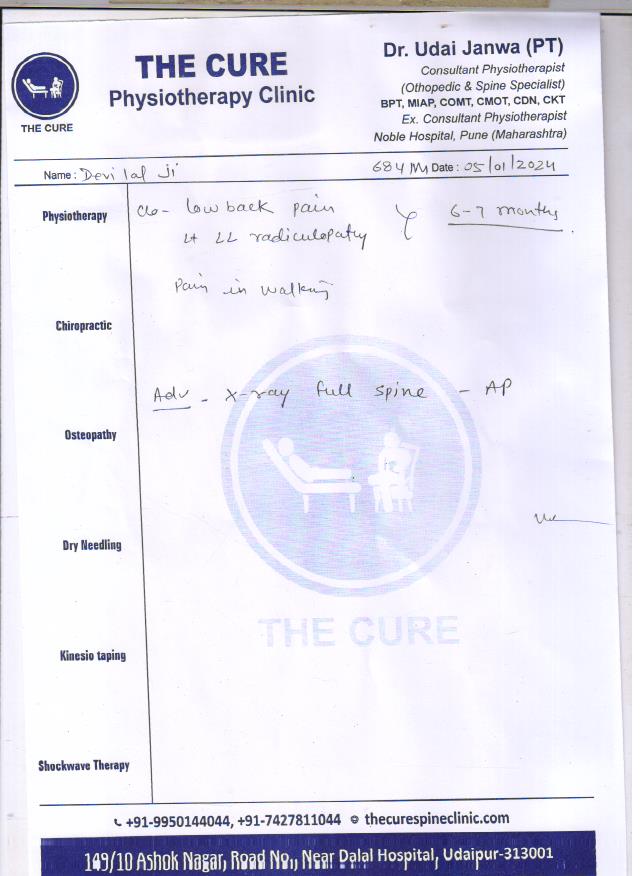 THE CURE
Physiotherapy Clinic
THE CURE
Dr. Udai Janwa (PT)
Consultant Physiotherapist
(Othopedic & Spine Specialist)
BPT, MIAP, COMT, CMOT, CDN, CKT
Ex. Consultant Physiotherapist
Noble Hospital, Pune (Maharashtra)
Name : Devi lal Ji
Date : 05/01/2024
Physiotherapy
c/o - low back pain
Lt LL radiculopathy
6-7 months
Pain in walking
Chiropractic
Adv - X-ray full spine - AP
Osteopathy
Dry Needling
THE CURE
Kinesio taping
Shockwave Therapy
+91-9950144044, +91-7427811044 thecurespineclinic.com
Ashok Nagar, Road No., Near Dalal Hospital, Udaipur-313001